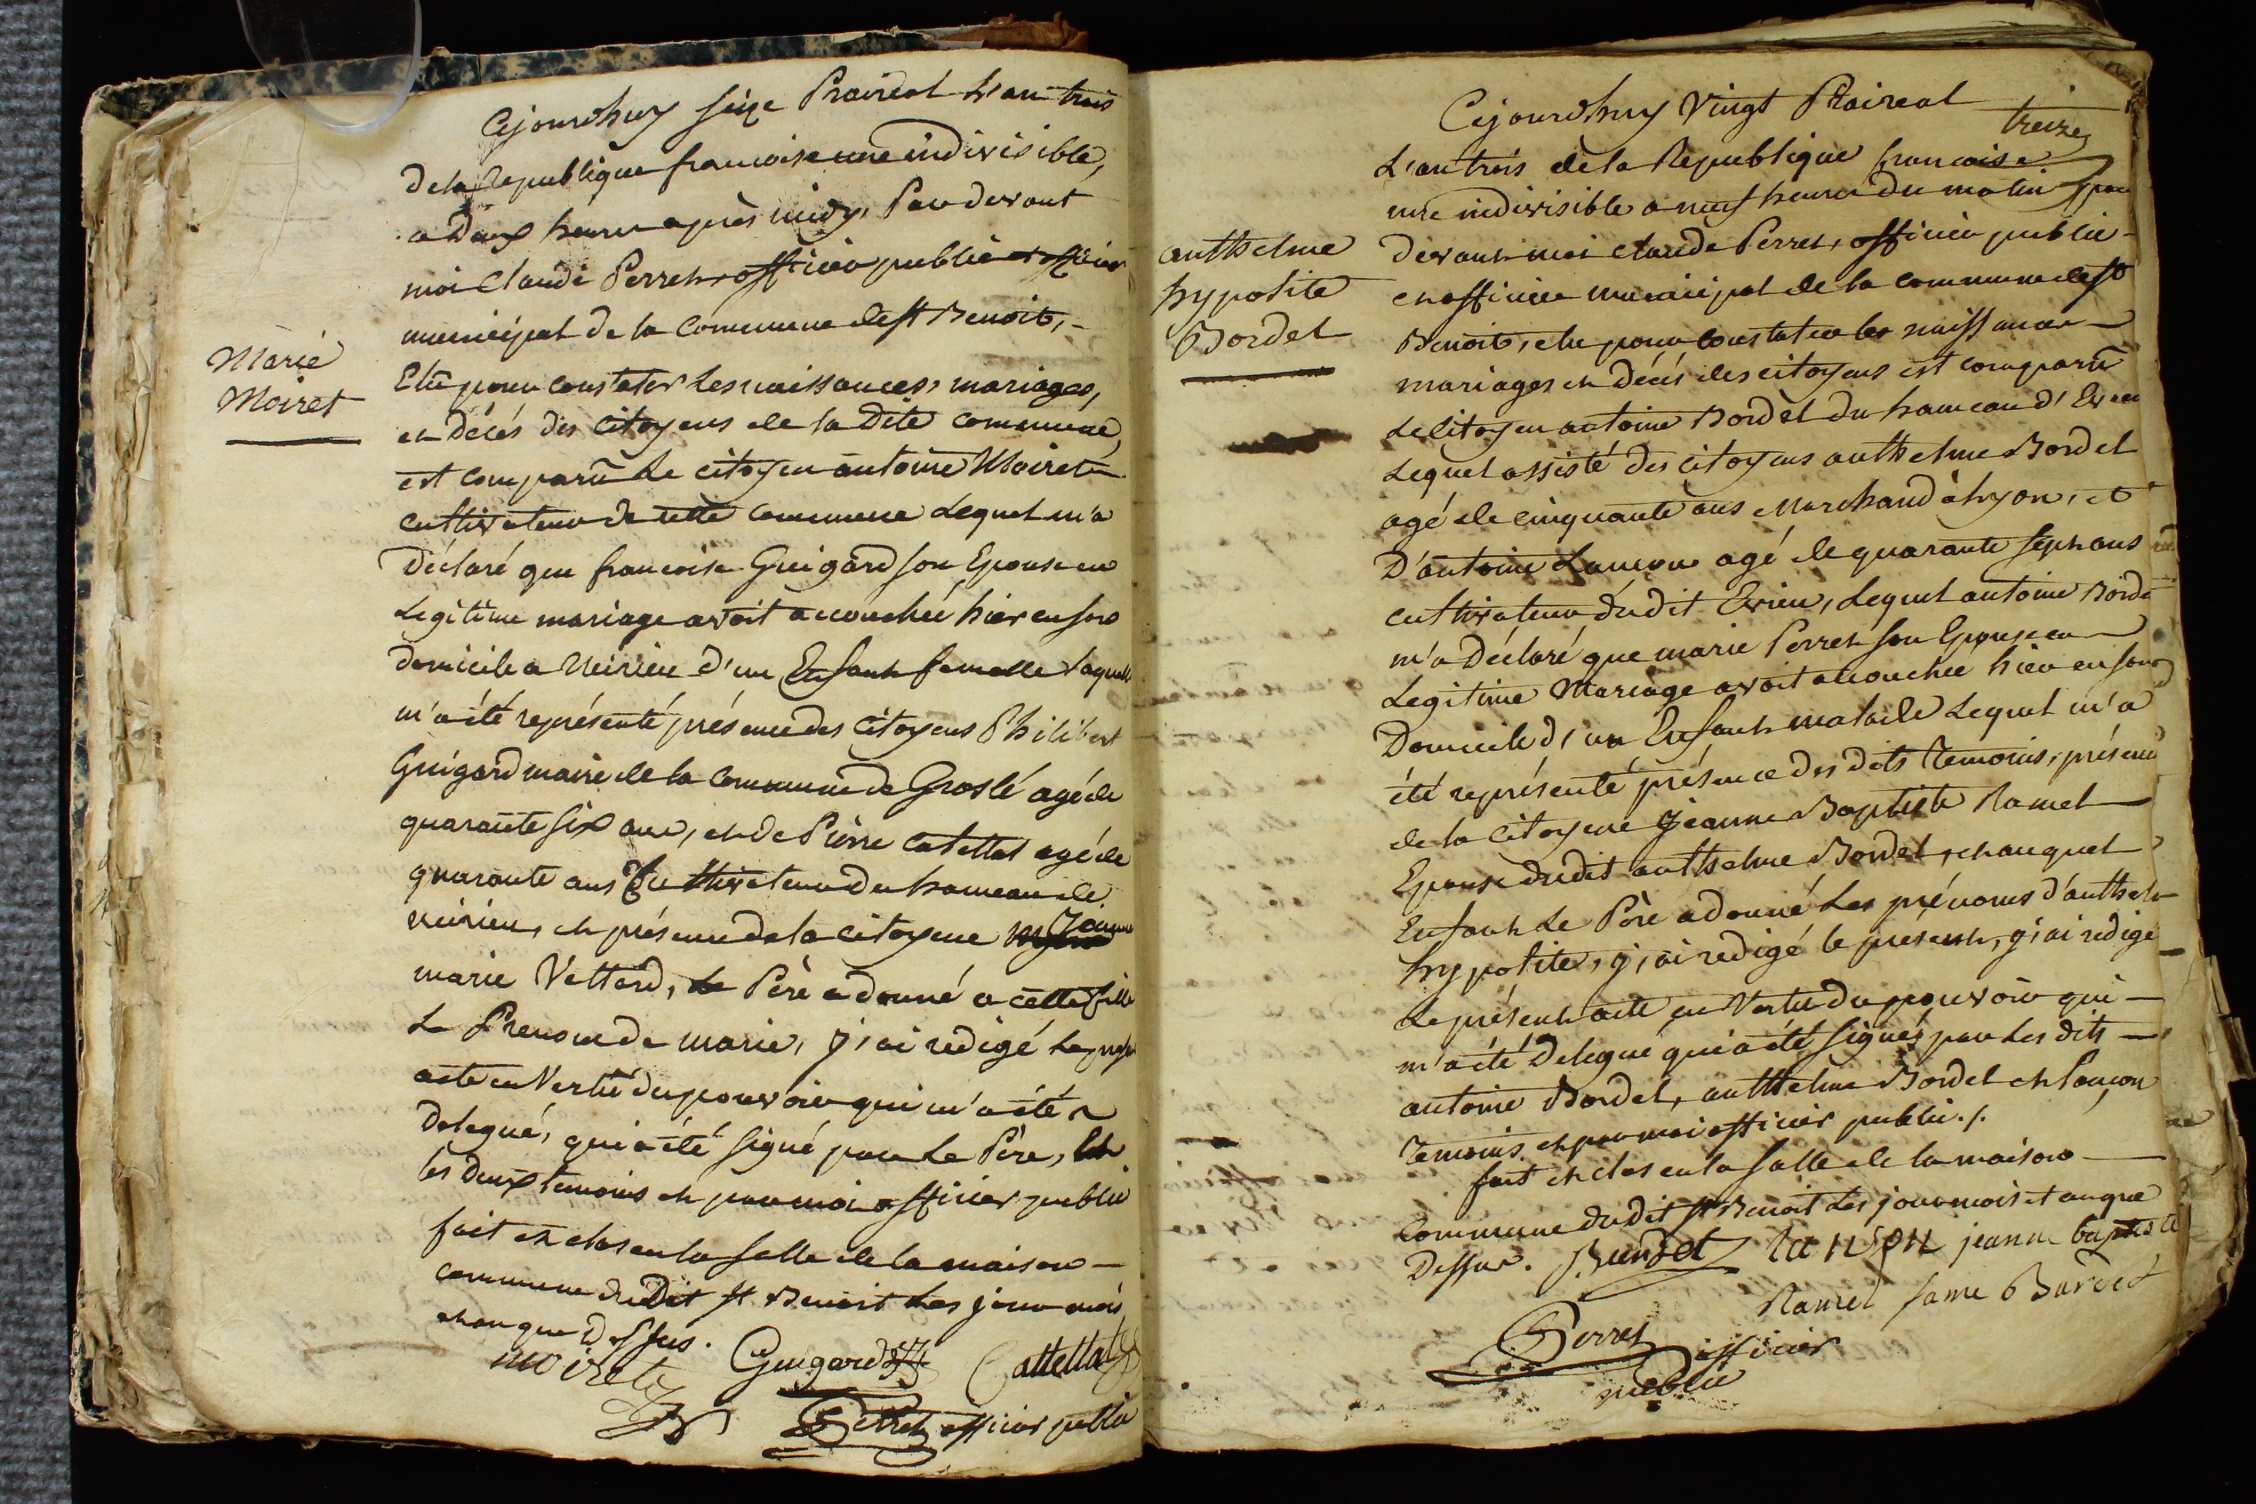 Marie
Moiret
Cejourdhuy seize Prairéal L'an trois
de la Republique francoise une indivisible,
a Deux heures après midy, Pardevant
moi Claude Perret, officier public et officier
municipal de la Commune de St Benoit,
Elu pour constater Les naissances, mariages,
et Décés des citoyens de la Dite commune,
est comparu Le citoyen antoine Moiret
cultivateur de cette commune Lequel m'a
Déclaré que francoise Guigard son Epouse en
Legitime mariage avoit accouchée hier en son
domicile a d'un Enfant femelle laquelle
m'a été représenté présence des citoyens Philibert
Guigard maire de la commune de Groslé agé de
quarante six ans, et de Pierre Catettat agé de
quarante ans Cultivateur du hameau de
et présence de la citoyene Jeanne
marie Vettard, Le Père a donné a cette fille
Le Prenom de marie, j'ai redigé Le present
acte en Vertu du pouvoir qui m'a été
Delegué, qui a été signé par Le Père,
les deux temoins et par moi officier public
fait et clos en la salle de la maison
commune du Dit St Benoit Les jour mois
et an que Dessus.
moiret Guigard Cattettat
Perret officier public
treize
anthelme
hypolite
Bordel
Cejourdhuy Vingt Prairéal
L'an trois de la Republique francoise
une indivisible a neuf heures du matin par
devant moi Claude Perret, officier public
et officier municipal de la commune de St
Benoit, elu pour constater les naissances
mariages et Décés des citoyens est comparu
Le citoyen antoine Bordel du hameau d'Evieu
Lequel assisté des citoyens anthelme Bordel
agé de cinquante ans Marchand à Lyon, et
D'antoine Lançon agé de quarante sept ans
cultivateur dudit Evieu, Lequel antoine Bordel
m'a Déclaré que marie Perret son Epouse en
Legitime Mariage avoit accouchée hier en son
Domicile d'un Enfant Lequel m'a
été représenté présence des dits Temoins, présence
de la citoyene jeanne Baptiste Ramel
Epouse dudit anthelme Bordel, et auquel
Enfant Le Père a donné Les prénoms d'anthelme
hypolite, j'ai redigé le present, j'ai redigé
Le présent acte en Vertu du pouvoir qui
m'a été Delegué qui a été signés par Les dits
antoine Bordel, anthelme Bordel et Lançon
Temoins, et par moi officier public./.
fait et clos en la Salle de la maison
Commune dudit St Benoit Les jour mois et an que
Dessus. Burdet lanson jeanne baptiste
Ramel fame Burdet
Perret officier
public